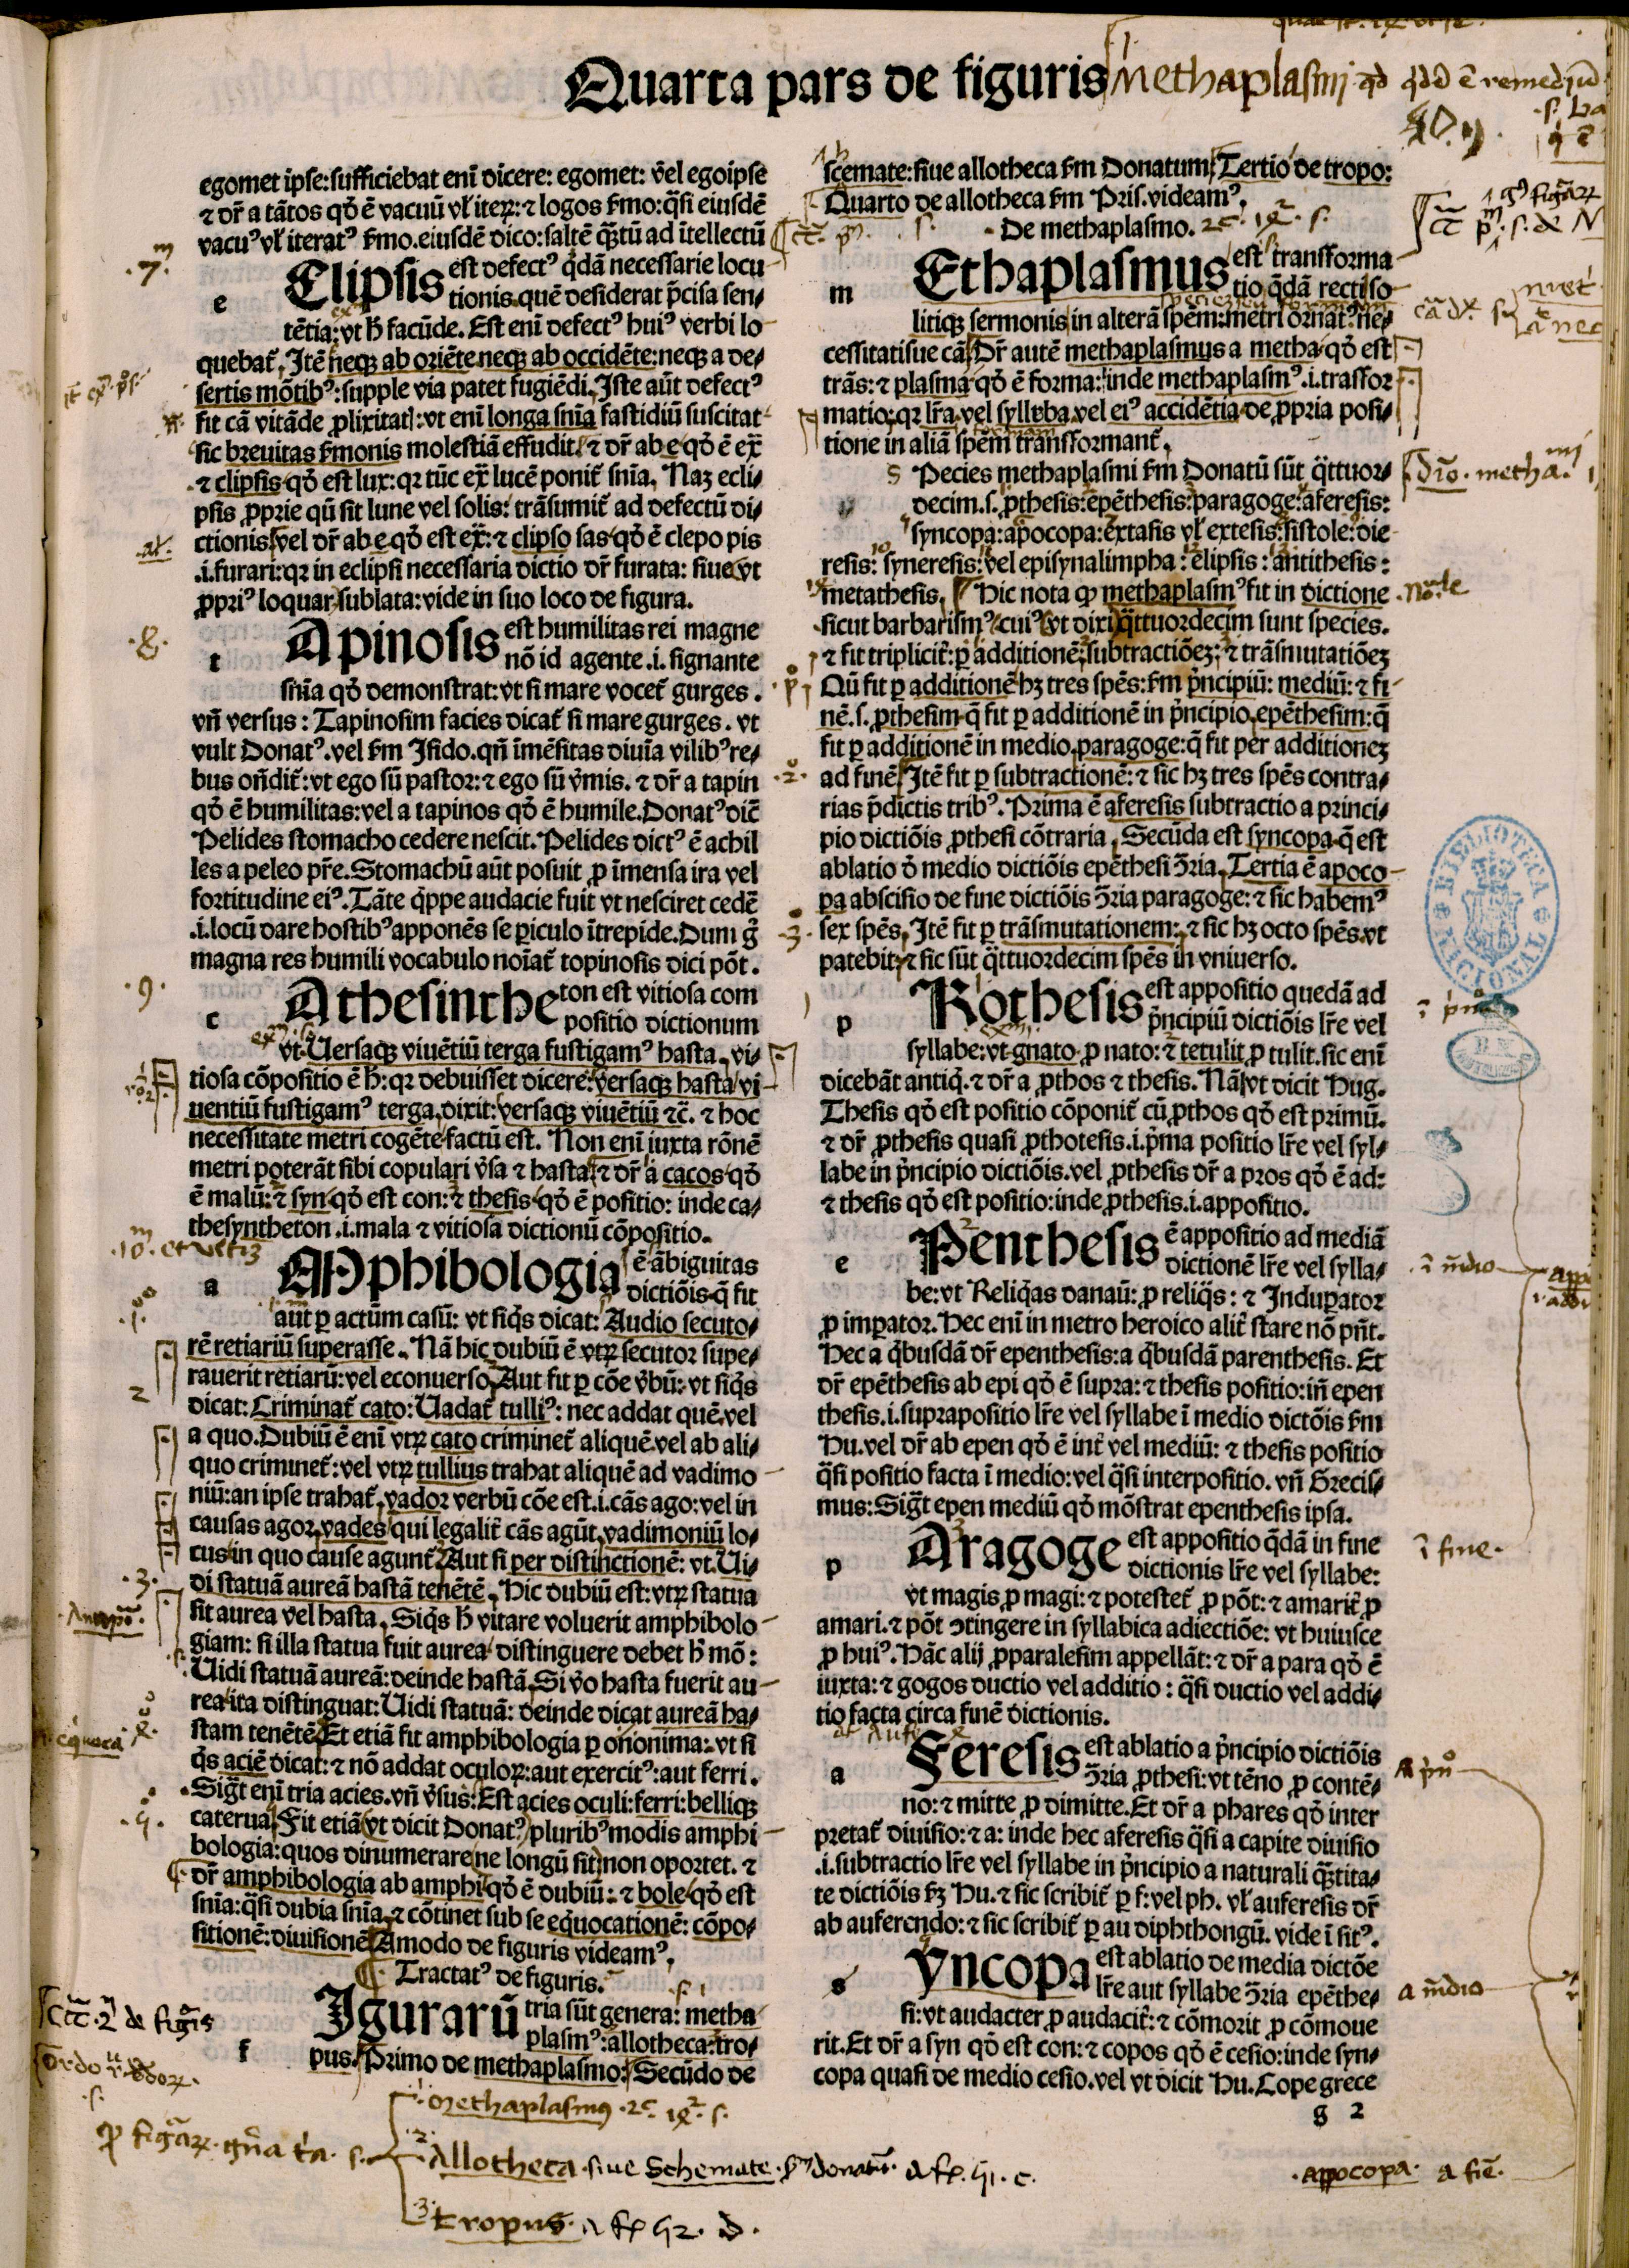 Quarta pars de figuris
egomet ipse: sufficiebat enī dicere: egomet: vel egoipse
⁊ dr̄ a tātos qđ ē vacuū vl̕ iterꝝ: ⁊ logos ẜmo: q̄si eiusdē
vacuꝰ vl̕ iteratꝰ ẜmo. eiusdē dico: saltē q̄ȝtū ad ītellectū
e Clipsis est defectꝰ q̄dā necessarie locu
tionis quē desiderat p̄cisa sen⸗
tētia: vt h̄ facūde. Est enī defectꝰ huiꝰ verbi lo
quebat̄. Itē neqꝫ ab oriēte neqꝫ ab occidēte: neqꝫ a de⸗
sertis mōtibꝰ: supple via patet fugiēdi. Iste aūt defectꝰ
fit cā vitāde ꝓlixitatꝭ: vt enī longa sn̄ia fastidiū suscitat
sic breuitas ẜmonis molestiā effudit. ⁊ dr̄ ab e qđ ē ex̄
⁊ clipsis qđ est lux: qꝛ tūc ex̄ lucē ponit̄ sn̄ia. Naꝫ ecli⸗
psis ꝓprie qū sit lune vel solis: trāsumit̄ ad defectū di⸗
ctionis vel dr̄ ab e qđ est ex̄: ⁊ clipso sas qđ ē clepo pis
.i. furari: qꝛ in eclipsi necessaria dictio dr̄ furata: siue vt
ꝓpriꝰ loquar sublata: vide in suo loco de figura.
t Apinosis est humilitas rei magne
nō id agente .i. signante
sn̄ia qđ demonstrat: vt si mare vocet̄ gurges.
vn̄ versus: Tapinosim facies dicat̄ si mare gurges. vt
vult Donatꝰ. vel ẜm Isido. qn̄ īmēsitas diuīa vilibꝰ re⸗
bus ondit̄: vt ego sū pastor: ⁊ ego sū v̄mis. ⁊ dr̄ a tapin
qđ ē humilitas: vel a tapinos qđ ē humile. Donatꝰ dic̄
Pelides stomacho cedere nescit. Pelides dictꝰ ē achil
les a peleo pr̄e. Stomachū aūt posuit ꝓ īmensa ira vel
fortitudine eiꝰ. Tāte q̄ppe audacie fuit vt nesciret cedē
.i. locū dare hostibꝰ apponēs se ꝑiculo ītrepide. Dum g̊
magna res humili vocabulo noīat̄ topinosis dici pōt.
c Athesinthe ton est vitiosa com
positio dictionum
vt. Uersaqꝫ viuētiū terga fustigamꝰ hasta. vi⸗
tiosa cōpositio ē h̄: qꝛ debuisset dicere: versaqꝫ hasta vi
uentiū fustigamꝰ terga. dixit: versaqꝫ viuētiū ⁊c̄. ⁊ hoc
necessitate metri cogēte factū est. Non enī iuxta rōnē
metri poterāt sibi copulari v̄sa ⁊ hasta ⁊ dr̄ a cacos qđ
ē malū: ⁊ syn qđ est con: ⁊ thesis qđ ē positio: inde ca⸗
thesyntheton .i. mala ⁊ vitiosa dictionū cōpositio.
a Mphibologia ē ābiguitas
dictiōis q̄ fit
aut ꝑ actūm casū: vt siq̄s dicat: Audio secuto⸗
rē retiariū superasse. Nā hic dubiū ē vtꝝ secutor supe⸗
rauerit retiarū: vel econuerso. Aut fit ꝑ cōe v̄bū: vt siq̄s
dicat: Criminat̄ cato: Uadat̄ tulliꝰ: nec addat quē. vel
a quo. Dubiū ē enī vtꝝ cato criminet̄ aliquē. vel ab ali⸗
quo criminet̄: vel vtꝝ tullius trahat aliquē ad vadimo
niū: an ipse trahat̄. vador verbū cōe est. i. cās ago: vel in
causas agor. vades qui legalit̄ cās agūt. vadimoniū lo⸗
cus in quo cause agunt̄. Aut fi per distinctionē: vt. Ui⸗
di statuā aureā hastā tenētē. Hic dubiū est: vtꝝ statua
sit aurea vel hasta. Siq̄s h̄ vitare voluerit amphibolo
giam: si illa statua fuit aurea distinguere debet h̄ mō:
Uidi statuā aureā: deinde hastā. Si v̄o hasta fuerit au
rea ita distinguat: Uidi statuā: deinde dicat aureā ha⸗
stam tenētē. Et etiā fit amphibologia ꝑ omonima: vt si
q̄s aciē dicat: ⁊ nō addat oculoꝝ: aut exercitꝰ: aut ferri.
Sigt̄ enī tria acies. vn̄ v̄sus: Est acies oculi: ferri: belliqꝫ
caterua. Fit etiā vt dicit Donatꝰ pluribꝰ modis amphi
bologia: quos dinumerare ne longū sit non oportet. ⁊
dr̄ amphibologia ab amphi qđ ē dubiū: ⁊ bole qđ est
sn̄ia: q̄si dubia sn̄ia. ⁊ cōtinet sub se eq̄uocationē: cōpo⸗
sitionē: diuisionē. Amodo de figuris videamꝰ.
Tractatꝰ de figuris.
f Iguraru̅ tria sūt genera: metha
plasmꝰ: allotheca: tro⸗
pus. Primo de methaplasmo: Secūdo de
methaplasmus
Allotheca siue Schemate
tropus
scemate: siue allotheca ẜm Donatum: Tertio de tropo:
Quarto de allotheca ẜm Pris. videamꝰ.
De methaplasmo.
m Ethaplasmus est trāsforma
tio q̄dā recti so
litiqꝫ sermonis in alterā spēm: metri ornatꝰ ne⸗
cessitatisue cā. Dr̄ autē methaplasmus a metha qđ est
trās: ⁊ plasma qđ ē forma: inde methaplasmꝰ .i. trasfor
matio: qꝛ lr̄a vel syllaba vel eiꝰ accidētia de ꝓpria posi⸗
tione in aliā spēm transformant̄.
Species methaplasmi ẜm Donatū sūt q̄ttuor⸗
decim .s. ꝓthesis: epēthesis: paragoge: aferesis:
syncopa: apocopa: extasis vl̕ extesis: sistole: die
resis: syneresis: vel episynalimpha: elipsis: antithesis:
metathesis. Hic nota ꝙ methaplasmꝰ fit in dictione
sicut barbarismꝰ cuiꝰ vt dixi q̄ttuordecim sunt species.
⁊ fit triplicit̄: ꝑ additionē: subtractiōeꝫ: ⁊ trāsmutatiōeꝫ
Qū fit ꝑ additionē hꝫ tres spēs: ẜm p̄ncipiū: mediū: ⁊ fi
nē .s. ꝓthesim q̄ fit ꝑ additionē in p̄ncipio. epēthesim: q̄
fit ꝑ additionē in medio. paragoge: q̄ fit per additioneꝫ
ad finē. Itē fit ꝑ subtractionē: ⁊ sic hꝫ tres spēs contra⸗
rias p̄dictis tribꝰ. Prima ē aferesis subtractio a princi⸗
pio dictiōis ꝓthesi cōtraria. Secūda est syncopa q̄ est
ablatio đ medio dictiōis epēthesi ɔ̄ria. Tertia ē apoco
pa abscisio de fine dictiōis ɔ̄ria paragoge: ⁊ sic habemꝰ
sex spēs. Itē fit ꝑ trāsmutationem: ⁊ sic hꝫ octo spēs vt
patebit: ⁊ sic sūt q̄ttuordecim spēs in vniuerso.
p Rothesis est appositio quedā ad
p̄ncipiū dictiōis lr̄e vel
syllabe: vt gnato ꝓ nato: ⁊ tetulit ꝓ tulit. sic enī
dicebāt antiq̄. ⁊ dr̄ a ꝓthos ⁊ thesis. Nā vt dicit Hug.
Thesis qđ est positio cōponit̄ cū ꝓthos qđ est primū.
⁊ dr̄ ꝓthesis quasi ꝓthotesis .i. p̄ma positio lr̄e vel syl⸗
labe in p̄ncipio dictiōis. vel ꝓthesis dr̄ a pros qđ ē ad:
⁊ thesis qđ est positio: inde ꝓthesis .i. appositio.
e Penthesis ē appositio ad mediā
dictionē lr̄e vel sylla⸗
be: vt Reliq̄as danaū: ꝓ reliq̄s: ⁊ Induꝑator
ꝓ imꝑator. Hec enī in metro heroico alit̄ stare nō pn̄t.
Hec a q̄busdā dr̄ epenthesis: a q̄busdā parenthesis. Et
dr̄ epēthesis ab epi qđ ē supra: ⁊ thesis positio: in̄ epen
thesis .i. suprapositio lr̄e vel syllabe ī medio dictōis ẜm
Hu. vel dr̄ ab epen qđ ē int̄ vel mediū: ⁊ thesis positio
q̄si positio facta ī medio: vel q̄si interpositio. vn̄ Grecis⸗
mus: Sigt̄ epen mediū qđ mōstrat epenthesis ipsa.
p Aragoge est appositio q̄dā in fine
dictionis lr̄e vel syllabe:
vt magis ꝓ magi: ⁊ potestet̄ ꝓ pōt: ⁊ amarit̄ ꝓ
amari. ⁊ pōt ɔtingere in syllabica adiectiōe: vt huiusce
ꝓ huiꝰ. Hāc alij ꝓparalesim appellāt: ⁊ dr̄ a para qđ ē
iuxta: ⁊ gogos ductio vel additio: q̄si ductio vel addi⸗
tio facta circa finē dictionis.
a Feresis est ablatio a p̄ncipio dictiōis
ɔ̄ria ꝓthesi: vt tēno ꝓ contē⸗
no: ⁊ mitte ꝓ dimitte. Et dr̄ a phares qđ inter
pretat̄ diuisio: ⁊ a: inde hec aferesis q̄si a capite diuisio
.i. subtractio lr̄e vel syllabe in p̄ncipio a naturali q̄ȝtita⸗
te dictiōis ẜꝫ Hu. ⁊ sic scribit̄ ꝑ f: vel ph. vl̕ auferesis dr̄
ab auferendo: ⁊ sic scribit̄ ꝑ au diphthongū. vide ī sitꝰ.
s Yncopa est ablatio de media dictōe
lr̄e aut syllabe ɔ̄ria epēthe⸗
si: vt audacter ꝓ audacit̄: ⁊ cōmorit ꝓ cōmoue
rit. Et dr̄ a syn qđ est con: ⁊ copos qđ ē cesio: inde syn⸗
copa quasi de medio cesio. vel vt dicit Hu. Cope grece
g 2
appocopa
BIBLIOTECA NACIONAL